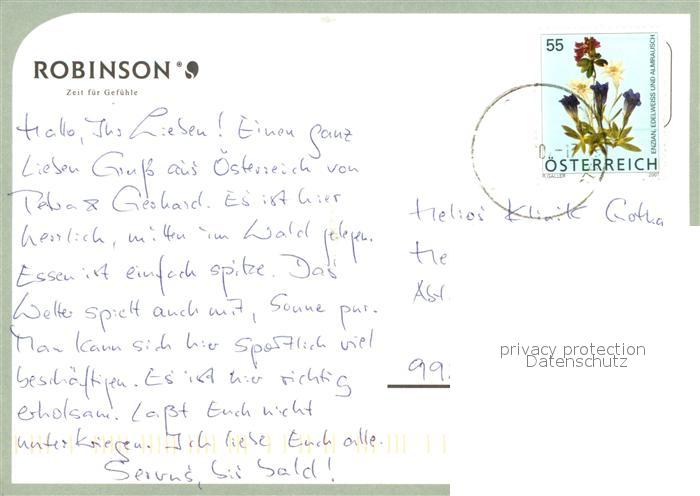 ROBINSON
Zeit für Gefühle
Hallo, Ihr Lieben! Einen ganz
lieben Gruß aus Österreich von
Petra & Gerhard. Es ist hier
herrlich, mitten im Wald gelegen.
Essen ist einfach spitze. Das
Wetter spielt auch mit, Sonne pur.
Man kann sich hier sportlich viel
beschäftigen. Es ist hier richtig
erholsam. Laßt Euch nicht
unterkriegen. Ich liebe Euch alle.
Servus, bis bald!
55
ENZIAN, EDELWEISS UND ALMRAUSCH
ÖSTERREICH
R. GALLER
2007
Helios Klinik Gotha
He
Abt.
99
privacy protection
Datenschutz